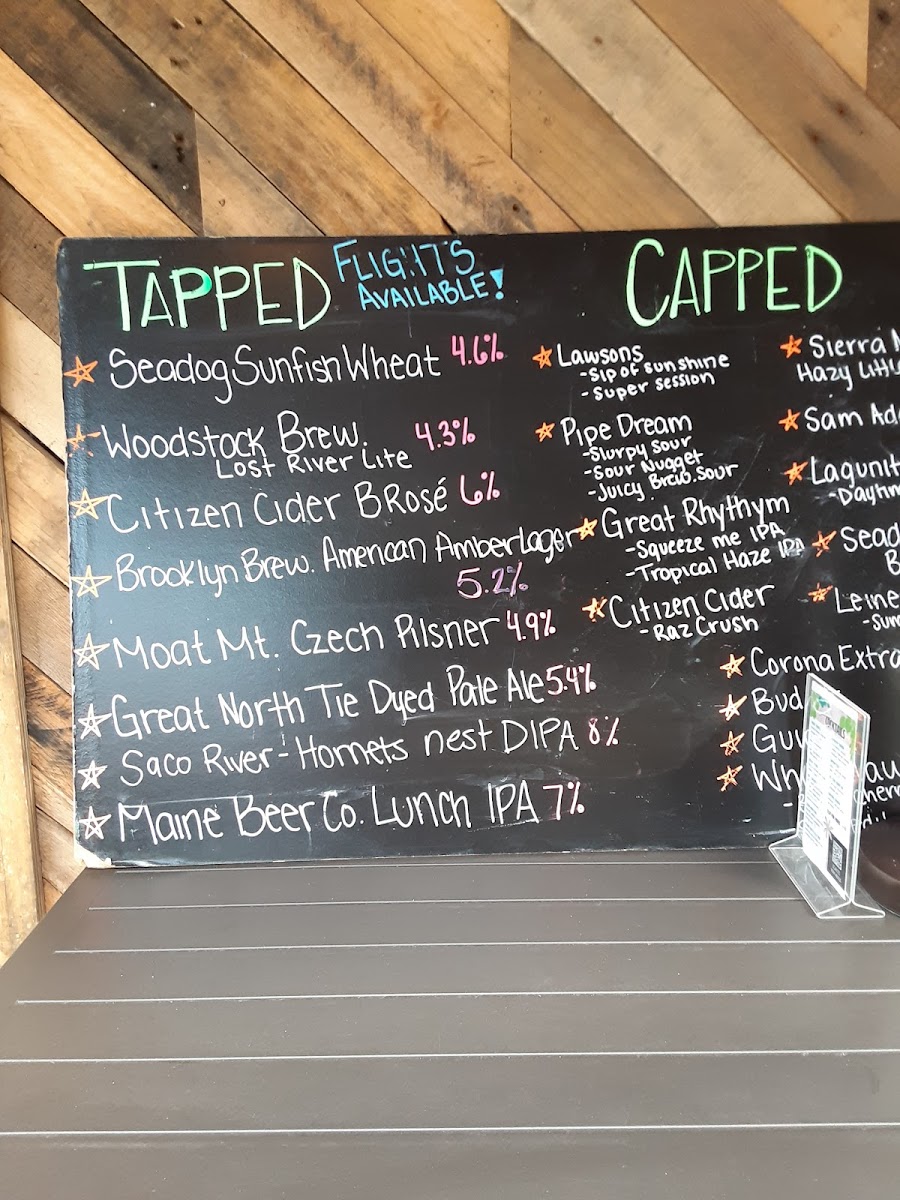 TAPPED
FLIGHTS
AVAILABLE!
Seadog Sunfish Wheat 4.6%
Woodstock Brew. 4.3%
Lost River Lite
Citizen Cider BRosé 6%
Brooklyn Brew. American Amber Lager
5.2%
Moat Mt. Czech Pilsner 4.9%
Great North Tie Dyed Pale Ale 5.4%
Saco River - Hornets nest DIPA 8%
Maine Beer Co. Lunch IPA 7%
CAPPED
Lawsons
- Sip of sunshine
- Super session
Pipe Dream
- Slurpy Sour
- Sour Nugget
- Juicy Brew. Sour
Great Rhythym
- Squeeze me IPA
- Tropical Haze IPA
Citizen Cider
- Raz Crush
Sierra
Hazy
Sam
Corona Extra
Bud